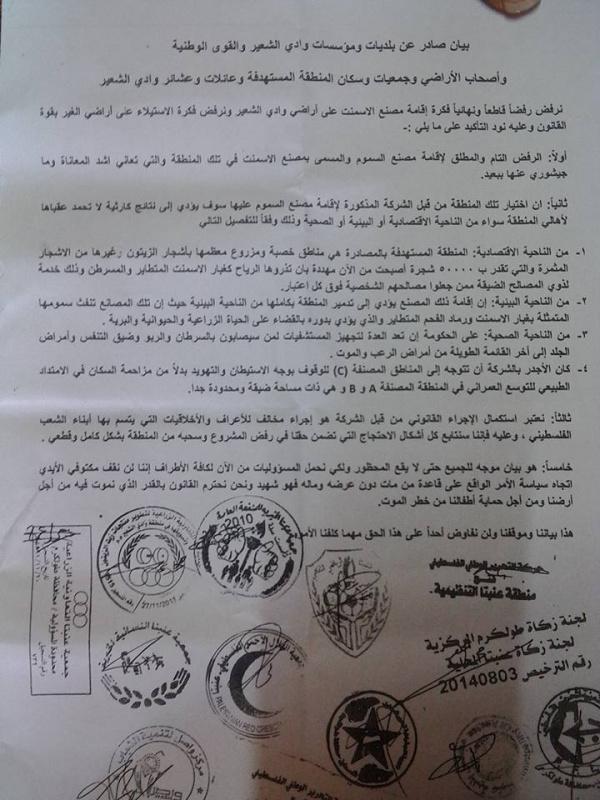 بيان صادر عن بلديات ومؤسسات وادي الشعير والقوى الوطنية
وأصحاب الأراضي وجمعيات وسكان المنطقة المستهدفة وعائلات وعشائر وادي الشعير
نرفض رفضاً قاطعاً ونهائياً فكرة إقامة مصنع الاسمنت على أراضي وادي الشعير ونرفض فكرة الاستيلاء على أراضي الغير بقوة
القانون وعليه نود التأكيد على ما يلي :-
أولاً: الرفض التام والمطلق لإقامة مصنع السموم والمسمى بمصنع الاسمنت في تلك المنطقة والتي تعاني اشد المعاناة وما
جيشوري عنها ببعيد.
ثانياً: ان اختيار تلك المنطقة من قبل الشركة المذكورة لإقامة مصنع السموم عليها سوف يؤدي إلى نتائج كارثية لا تحمد عقباها
لأهالي المنطقة سواء من الناحية الاقتصادية أو البيئية أو الصحية وذلك وفقاً للتفصيل التالي
١- من الناحية الاقتصادية: المنطقة المستهدفة بالمصادرة هي مناطق خصبة ومزروع معظمها بأشجار الزيتون وغيرها من الاشجار
المثمرة والتي تقدر ب ٥٠٠٠٠ شجرة أصبحت من الآن مهددة بان تذروها الرياح كغبار الاسمنت المتطاير والمسرطن وذلك خدمة
لذوي المصالح الضيقة ممن جعلوا مصالحهم الشخصية فوق كل اعتبار.
٢- من الناحية البيئية: إن إقامة ذلك المصنع يؤدي إلى تدمير المنطقة بكاملها من الناحية البيئية حيث إن تلك المصانع تنفث سمومها
المتمثلة بغبار الاسمنت ورماد الفحم المتطاير والذي يؤدي بدوره بالقضاء على الحياة الزراعية والحيوانية والبرية .
٣- من الناحية الصحية: على الحكومة إن تعد العدة لتجهيز المستشفيات لمن سيصابون بالسرطان والربو وضيق التنفس وأمراض
الجلد إلى أخر القائمة الطويلة من أمراض الرعب والموت .
٤- كان الأجدر بالشركة أن تتوجه إلى المناطق المصنفة (C) للوقوف بوجه الاستيطان والتهويد بدلاً من مزاحمة السكان في الامتداد
الطبيعي للتوسع العمراني في المنطقة المصنفة A و B و هي ذات مساحة ضيقة ومحدودة جدا.
ثالثاً: نعتبر استكمال الإجراء القانوني من قبل الشركة هو إجراء مخالف للأعراف والأخلاقيات التي يتسم بها أبناء الشعب
الفلسطيني ، وعليه فإننا سنتابع كل أشكال الاحتجاج التي تضمن حقنا في رفض المشروع وسحبه من المنطقة بشكل كامل وقطعي .
خامساً: هو بيان موجه للجميع حتى لا يقع المحظور ولكي نحمل المسؤوليات من الآن لكافة الأطراف إننا لن نقف مكتوفي الأيدي
اتجاه سياسة الأمر الواقع على قاعدة من مات دون عرضه وماله فهو شهيد ونحن نحترم القانون بالقدر الذي نموت فيه من أجل
أرضنا ومن أجل حماية أطفالنا من خطر الموت.
هذا بياننا وموقفنا ولن نفاوض أحداً على هذا الحق مهما كلفنا الأمر
2010
27/11/2011
جمعية عنبتا التعاونية الزراعية
محدودة المسؤولية / محافظة طولكرم
حركة التحرير الوطني الفلسطيني
فتح
منطقة عنبتا التنظيمية
لجنة زكاة طولكرم المركزية
لجنة زكاة عنبتا المحلية
رقم الترخيص 20140803
جمعية عنبتا النسائية
جمعية الهلال الأحمر الفلسطيني عنبتا
PALESTINIAN RED CRESCENT
مركز واصل لتنمية الشباب